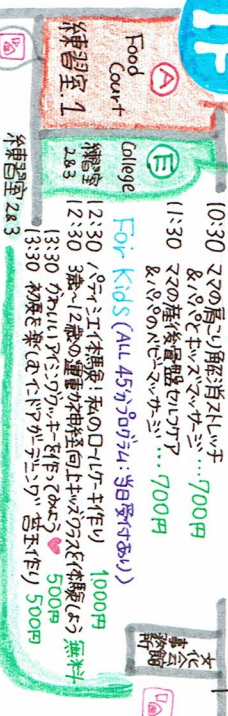 1F
A
Food
Court
練習室.1
E
College
練習室
2&3
10:30 ママの肩こり解消ストレッチ
&パパとキッズマッサージ…700円
11:30 ママの産後骨盤セルフケア
&パパのベビーマッサージ…700円
For Kids (ALL 45分プログラム:当日受付あり)
12:30 パティシエ体験！私のロールケーキ作り 1,000円
12:30 3歳〜12歳の運動神経向上キッズクラスを体験しよう 無料
13:30 かわいいアイシングクッキーを作ってみよう 500円
13:30 初夏を楽しむインドアガーデニング 苔玉作り 500円
練習室2&3
文化会館
事務所